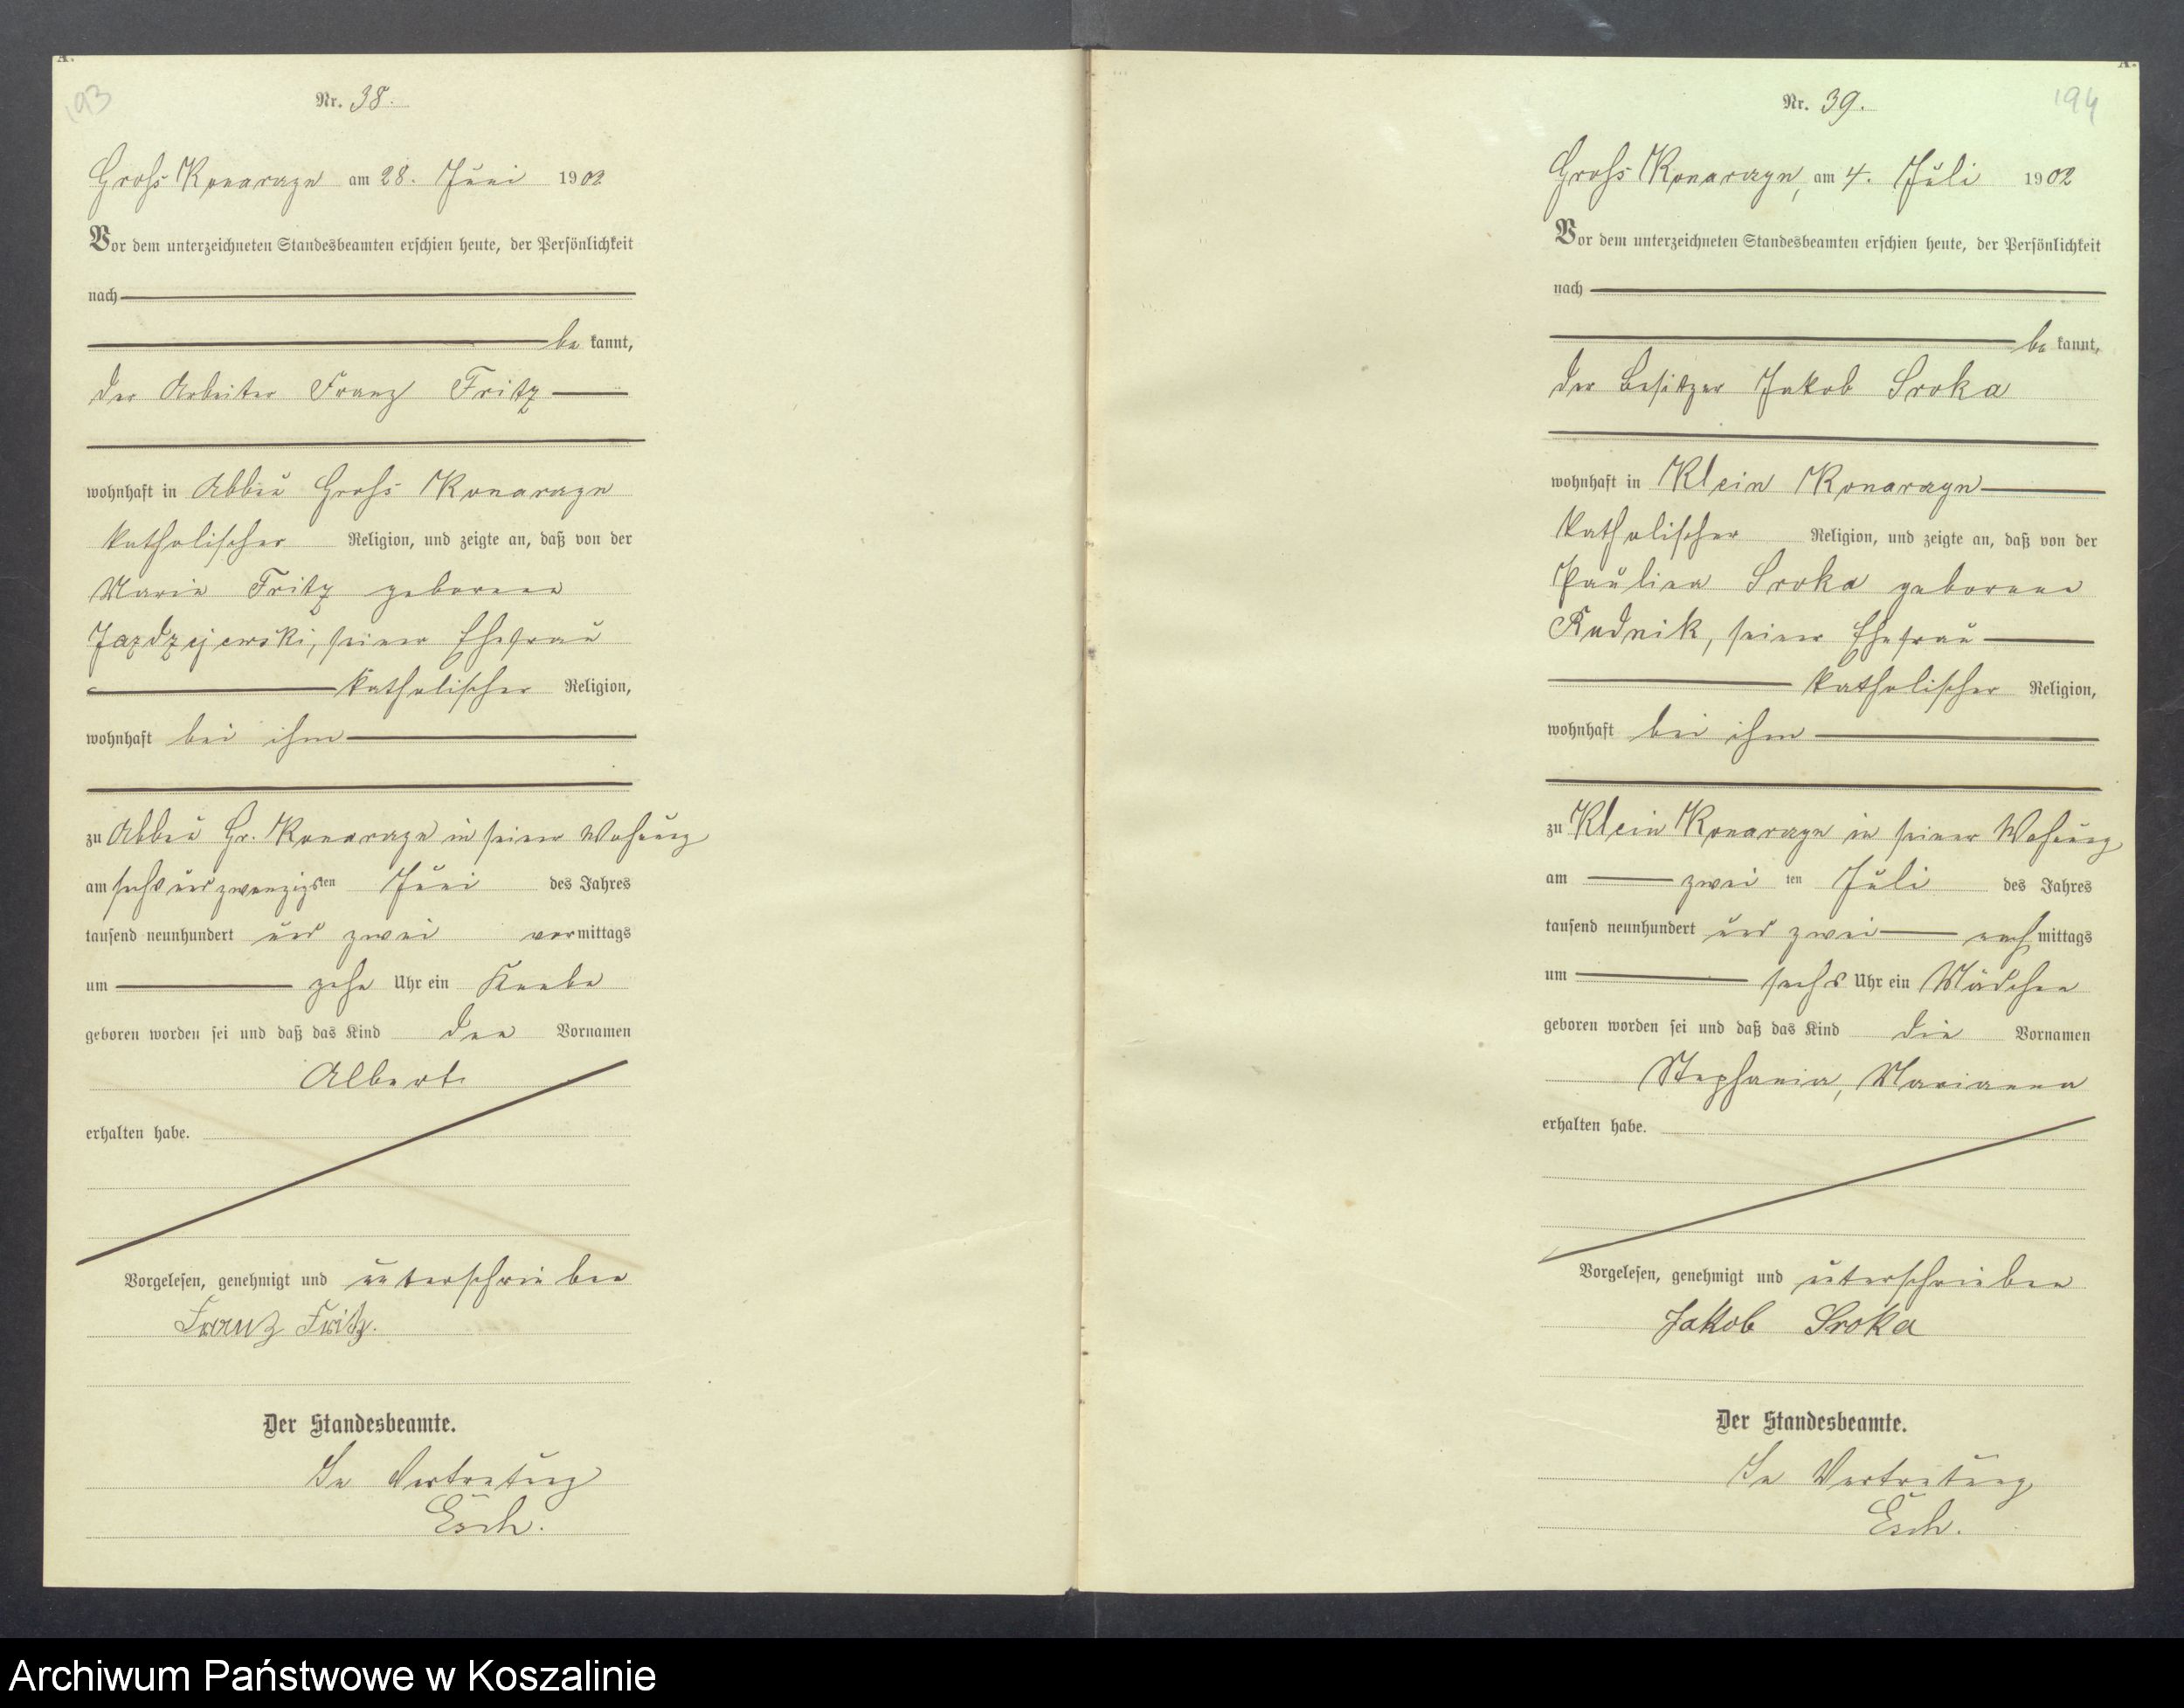 A.
193
Nr. 38.
Gross Konarzyn am 28. Juni 1902
Vor dem unterzeichneten Standesbeamten erschien heute, der Persönlichkeit
nach
be kannt,
der Arbeiter Franz Fritz
wohnhaft in Abbau Gross Konarzyn
katholischer Religion, und zeigte an, daß von der
Maria Fritz geborene
Jazdzejewski, seiner Ehefrau
katholischer Religion,
wohnhaft bei ihm
zu Abbau Gr. Konarzyn in seiner Wohnung
am sechs und zwanzigsten Juni des Jahres
tausend neunhundert und zwei vormittags
um zehn Uhr ein Knabe
geboren worden sei und daß das Kind den Vornamen
Albert
erhalten habe.
Vorgelesen, genehmigt und unterschrieben
Franz Fritz.
Der Standesbeamte.
In Vertretung
Esch.
A.
194
Nr. 39.
Gross Konarzyn, am 4. Juli 1902
Vor dem unterzeichneten Standesbeamten erschien heute, der Persönlichkeit
nach
be kannt,
der Besitzer Jakob Sroka
wohnhaft in Klein Konarzyn
katholischer Religion, und zeigte an, daß von der
Paulina Sroka geborene
Rudnik, seiner Ehefrau
katholischer Religion,
wohnhaft bei ihm
zu Klein Konarzyn in seiner Wohnung
am zwei ten Juli des Jahres
tausend neunhundert und zwei nach mittags
um sechs Uhr ein Mädchen
geboren worden sei und daß das Kind die Vornamen
Stephania, Marianna
erhalten habe.
Vorgelesen, genehmigt und unterschrieben
Jakob Sroka
Der Standesbeamte.
In Vertretung
Esch.
Archiwum Państwowe w Koszalinie